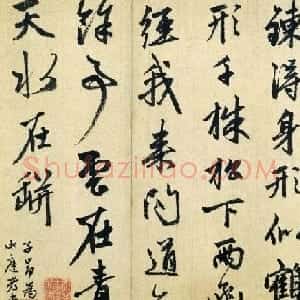 鍊得身形似鶴
形千株松下兩函
經我來問道無
餘事雲在青
天水在缾
子昂為
Shufaziliao.com